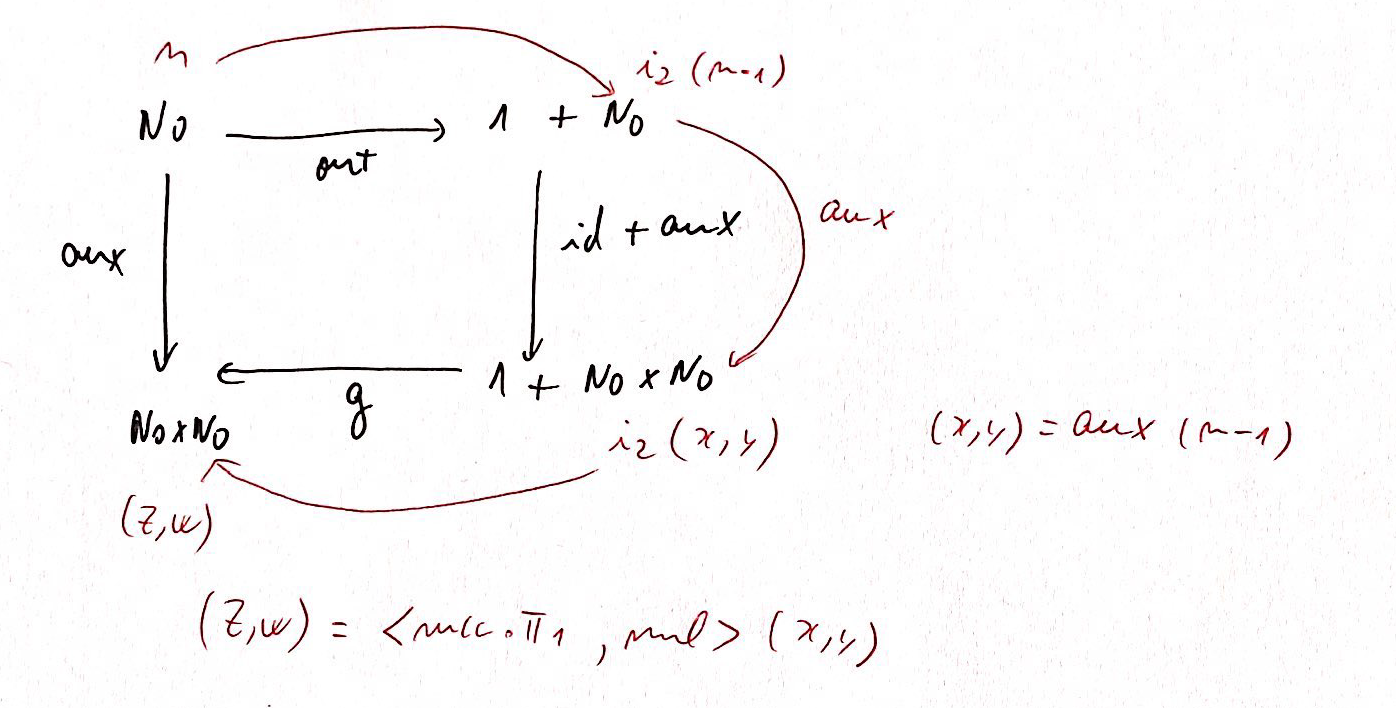 n
i2 (n-1)
N0
1 + N0
out
aux
id + aux
aux
g
1 + N0 x N0
N0xN0
i2 (x, y)
(x,y) = aux (n-1)
(z,w)
(z,w) = <succ.π1, mul> (x,y)